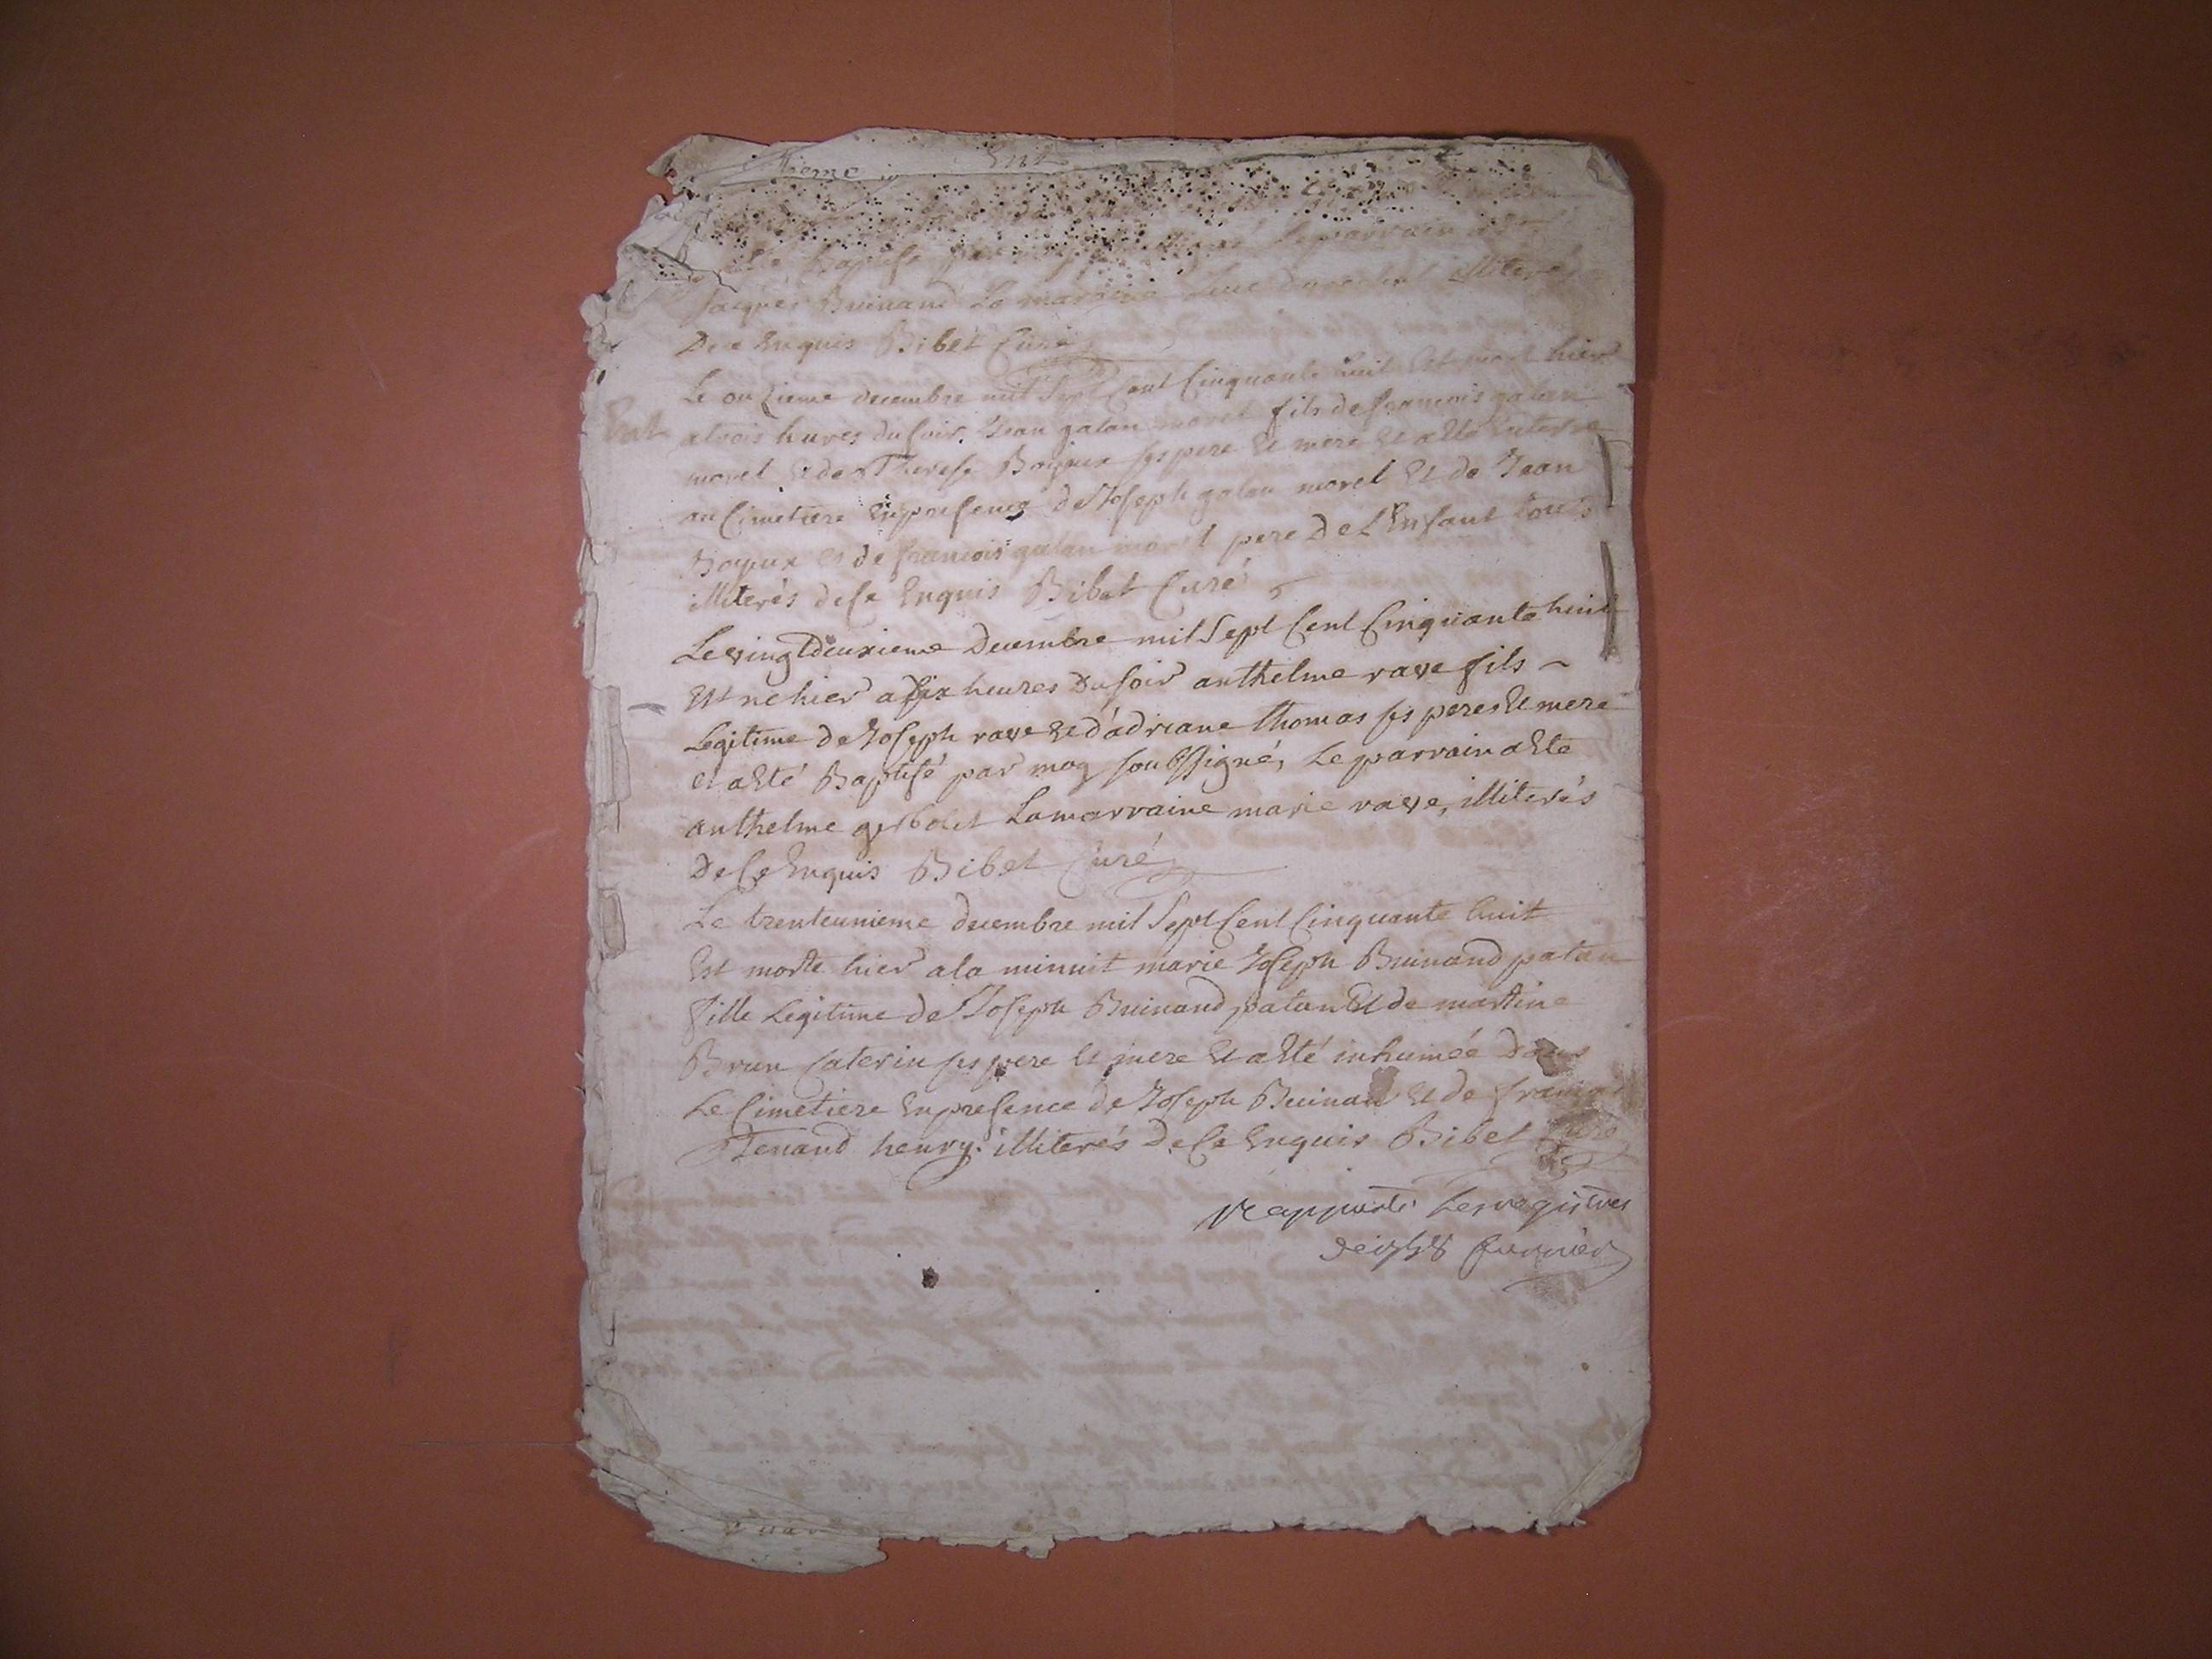 Baptise par Le parrain a Eté
Jacques Buinand La marraine illiteres
De ce Enquis Bibet Curé
Le onzieme decembre mil Sept Cent Cinquante huit Est mort hier
atrois heures du soir Jean galan morel fils de francois galan
morel et de Therese Boyeux ses pere Et mere Et a Eté Enterre
au Cimetiere Enpresence de Joseph galan morel Et de Jean
Boyeux et de francois galan morel pere De L'Enfant touts
illiterés de ce Enquis Bibet Curé
Le vingtdeuxieme Decembre mil Sept Cent Cinquante huit
Est ne hier a six heures Du soir anthelme rave fils
Legitime de Joseph rave Et d'adriane thomas ses peres Et mere
et a Eté Baptisé par moy soussigné, Le parrain a Ete
anthelme gerbolet La marraine marie rave, illiterés
De Ce Enquis Bibet Curé
Le trenteunieme decembre mil Sept Cent Cinquante huit
Est morte hier a la minuit marie Joseph Buinand patan
fille Legitime de Joseph Buinand patan Et de martine
Brun Caterin ses pere Et mere Et a Eté inhumée Dans
Le Cimetiere Enpresence de Joseph Buinand Et de francois
Tenand henry. illiterés De Ce Enquis Bibet Curé
Rapporté Les registres
de 1758